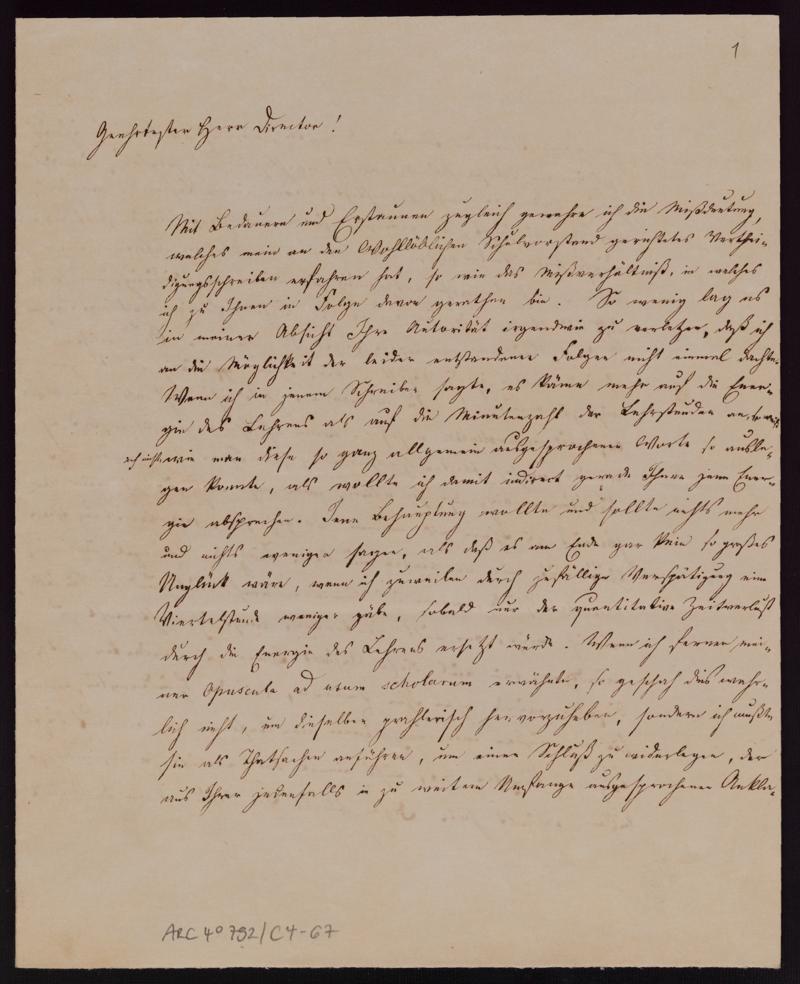 1
Geehrtester Herr Director!
Mit Bedauern und Erstaunen zugleich gewahre ich die Mißdeutung,
welches mein an den Wohllöblichen Schulvorstand gerichtetes Verthei-
digungsschreiben erfahren hat, so wie das Mißverhältniß, in welches
ich zu Ihnen in Folge davon gerathen bin. So wenig lag es
in meiner Absicht Ihre Autorität irgendwie zu verletzen, daß ich
an die Möglichkeit der leider entstandenen Folgen nicht einmal dachte.
Wenn ich in jenem Schreiben sagte, es käme mehr auf die Ener-
gie des Lehrens als auf die Minutenzahl der Lehrstunden an, so weiß
ich nicht wie man diese so ganz allgemein ausgesprochenen Worte so ausle-
gen konnte, als wollte ich damit indirect gerade Ihnen jene Ener-
gie absprechen. Jene Behauptung wollte und sollte nichts mehr
und nichts weniger sagen, als daß es am Ende gar kein so großes
Unglück wäre, wenn ich zuweilen durch zufällige Verspätigung eine
Viertelstunde weniger gäbe, sobald nur der quantitative Zeitverlust
durch die Energie des Lehrens ersetzt würde. Wenn ich ferner mei-
ner Opuscula ad usum scholarum erwähnte, so geschah dies wahr-
lich nicht, um dieselben prahlerisch hervorzuheben, sondern ich mußte
sie als Thatsachen anführen, um einen Schluß zu widerlegen, der
aus Ihrer jedenfalls in zu weitem Umfange ausgesprochenen Ankla-
ARC 4° 792/C4-67